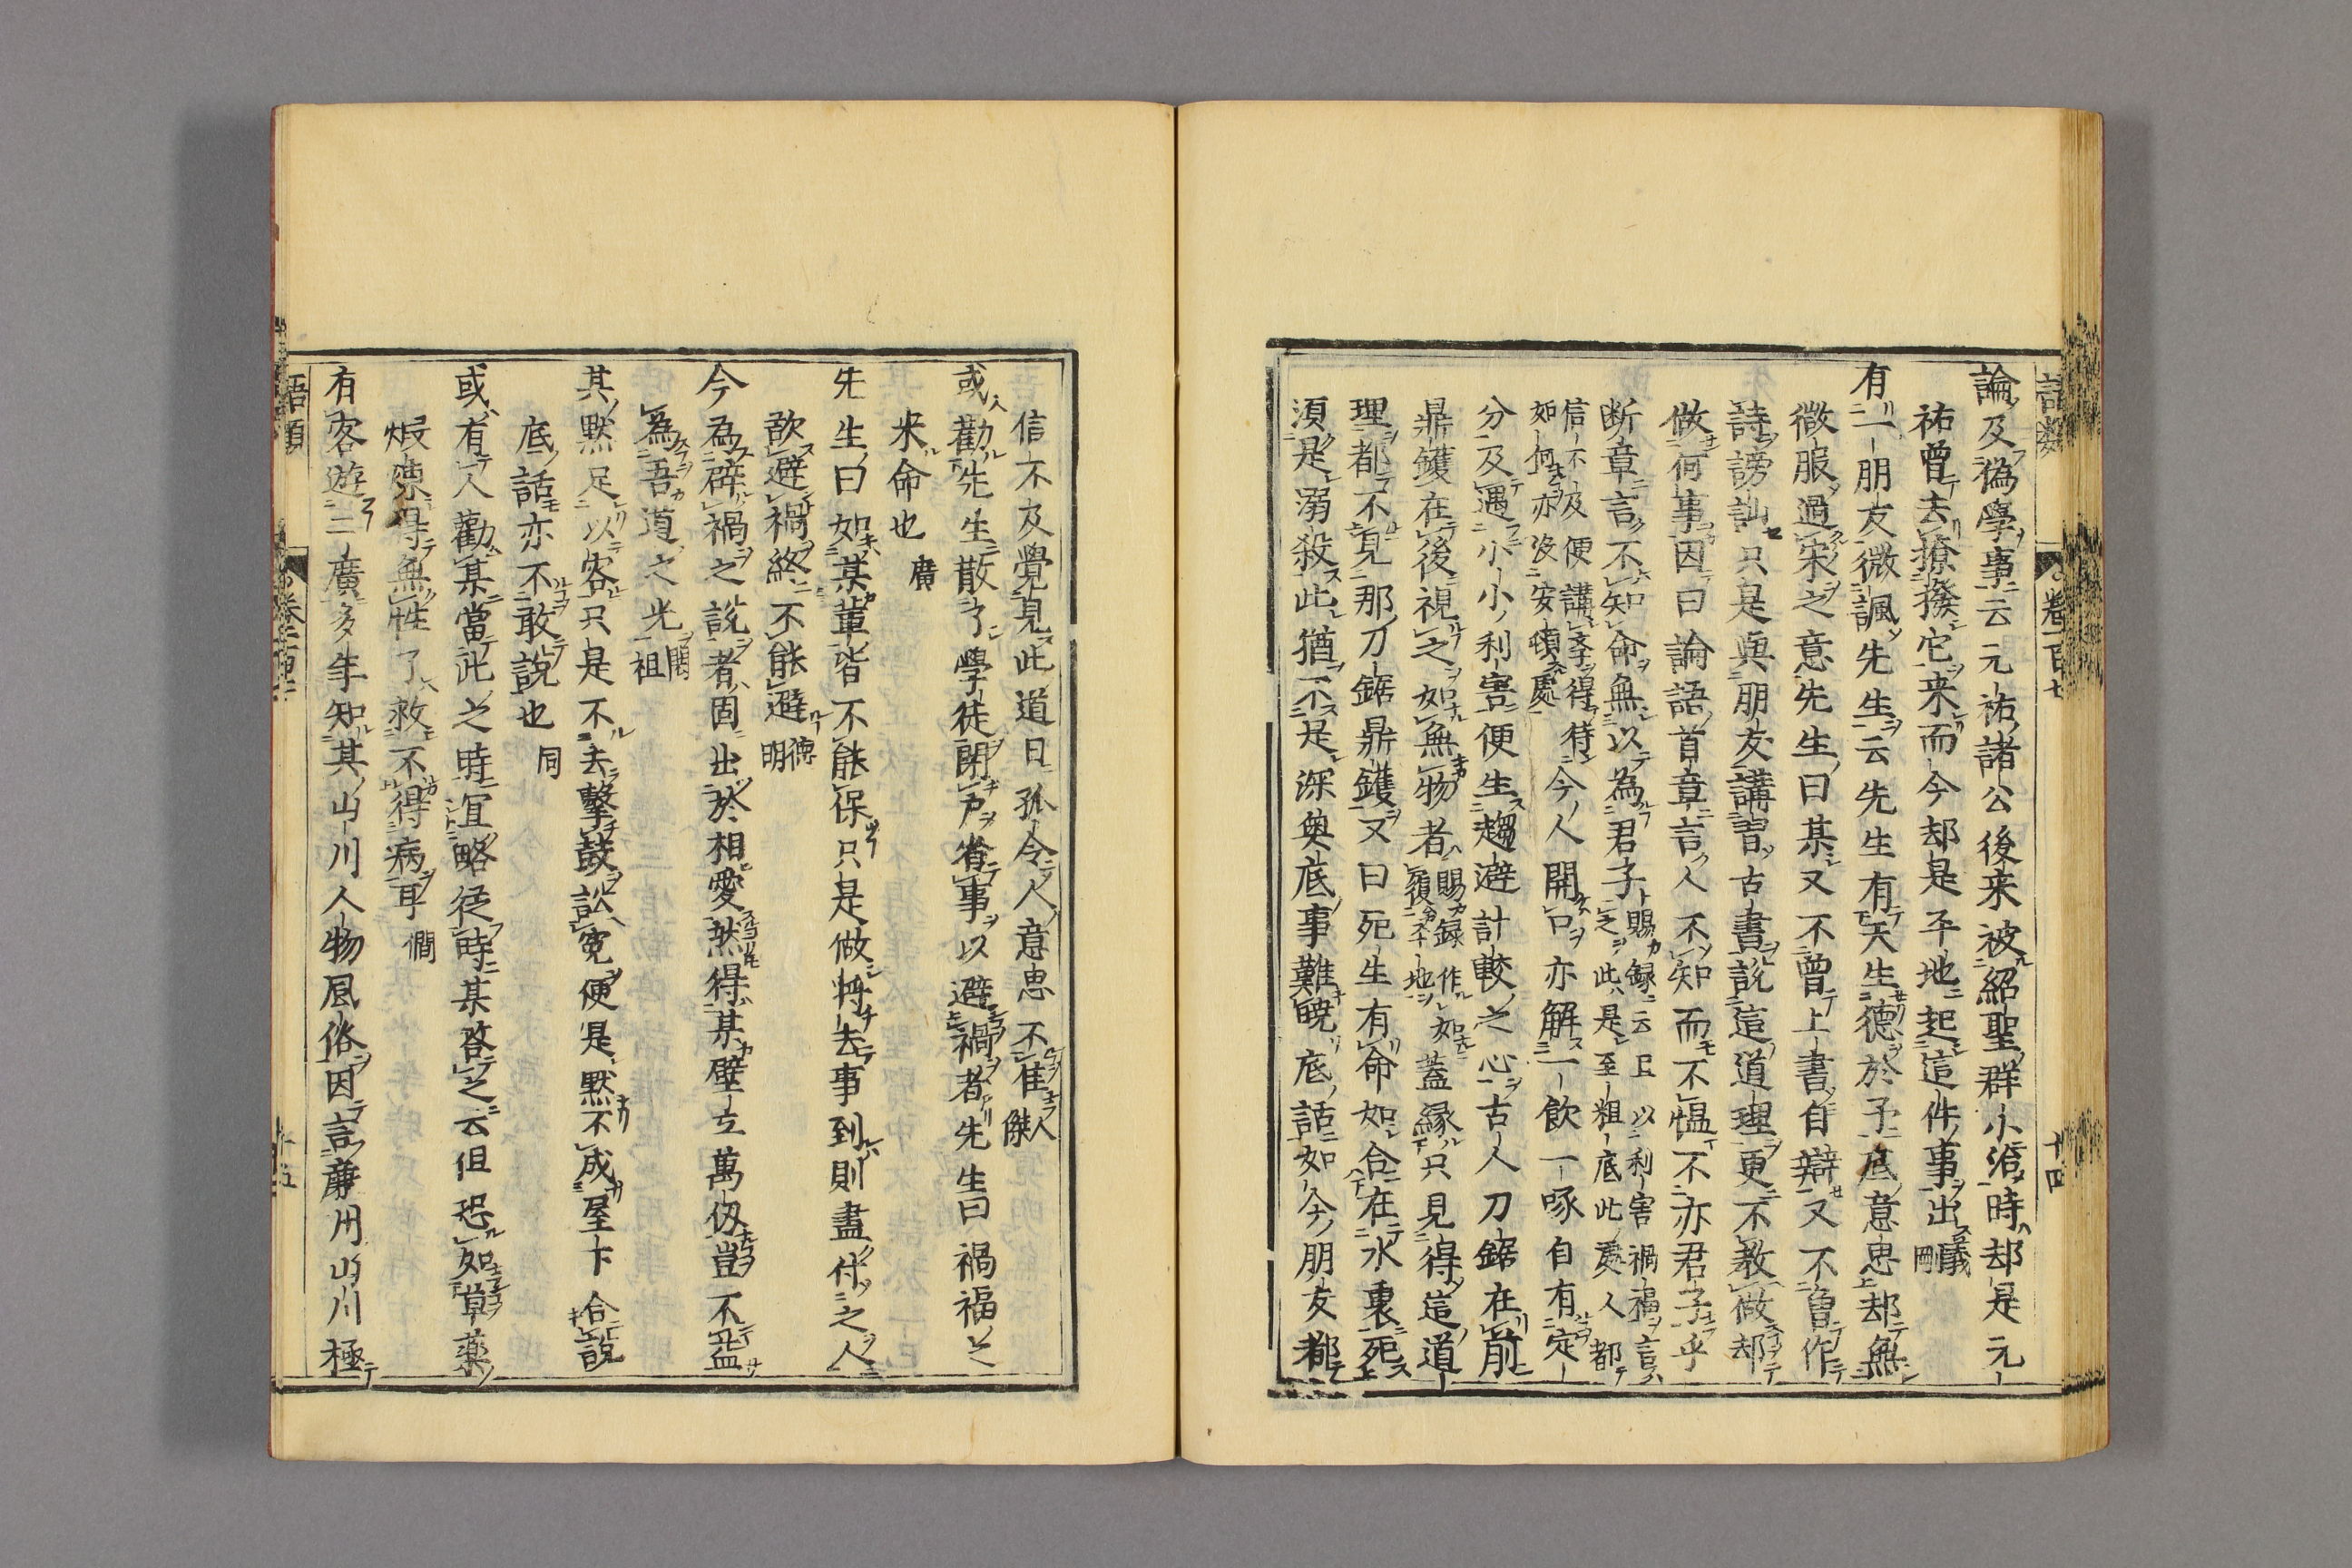 語類
卷一百七
十四
論及偽學事云元祐諸公後来被紹聖群小治時却是元
祐曽去撩撥它来而今却是平地起這件事出義剛
有一朋友微諷先生云先生有天生德於予底意思却無
微服過宋之意先生曰某又不曽上書自辯又不曽作
詩謗訕只是與朋友講習古書說這道理更不教做却
做何事因曰論語首章言人不知而不慍不亦君子乎
断章言不知命無以為君子賜録云且以利害禍福言之此是至粗底此處人都
信不及便講學得待如何亦没安頓處今人開口亦解一飲一啄自有定
分及遇小小利害便生趨避計較之心古人刀鋸在前
鼎鑊在後視之如無物者賜録作如履平地蓋緣只見得這道
理都不見那刀鋸鼎鑊又曰死生有命如合在水裏死
須是溺殺此猶不是深奥底事難曉底話如今朋友都
信不及覺見此道日孤令人意思不佳人傑
或勸先生散了學徒閉户省事以避禍者先生曰禍福之
来命也廣
先生曰如某輩皆不能保只是做将去事到則盡付之人
欲避禍終不能避德明
今為辟禍之說者固出於相愛然得某壁立萬仞豈不益
為吾道之光閎祖
其黙足以容只是不去擊鼓訟寃便是黙不成屋下合說
底話亦不敢說也同
或有人勸某當此之時宜略從時某答之云但恐如草藥
煅煉得無性了救不得病耳僩
有客遊二廣多年知其山川人物風俗因言廉州山川極
語類
十五